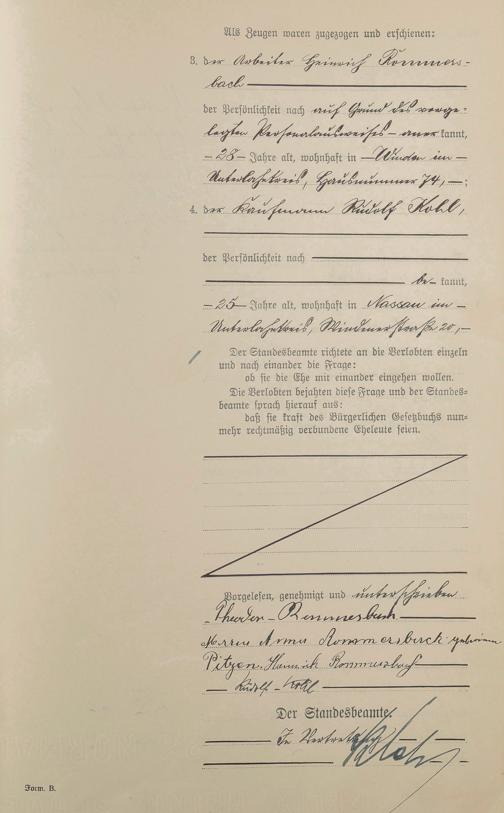 Als Zeugen waren zugezogen und erschienen:
3. der Arbeiter Heinrich Rommers-
bach
der Persönlichkeit nach auf Grund des vorge-
legten Personalausweises - aner kannt,
- 28 - Jahre alt, wohnhaft in - Winden im -
Unterlahnkreis, Hausnummer 74, - ;
4. der Kaufmann Rudolf Kohl,
der Persönlichkeit nach
be- kannt,
- 25 - Jahre alt, wohnhaft in Nassau im -
Unterlahnkreis, Windenerstraße 20, -
Der Standesbeamte richtete an die Verlobten einzeln
und nach einander die Frage:
ob sie die Ehe mit einander eingehen wollen.
Die Verlobten bejahten diese Frage und der Standes-
beamte sprach hierauf aus:
daß sie kraft des Bürgerlichen Gesetzbuchs nun-
mehr rechtmäßig verbundene Eheleute seien.
Vorgelesen, genehmigt und unterschrieben
Theodor Rommersbach
Anna Rommersbach geborene
Heinrich Rommersbach
Rudolf Kohl
Der Standesbeamte.
In Vertretung
Form. B.